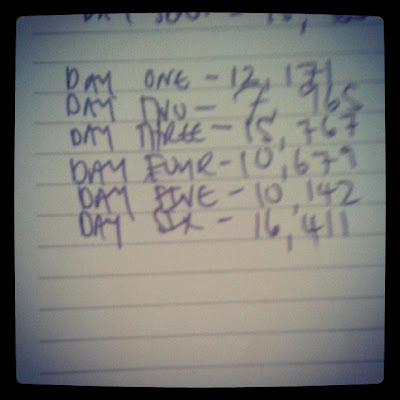 DAY
DAY ONE - 12, 171
DAY TWO - 7, 965
DAY THREE - 15, 767
DAY FOUR - 10, 679
DAY FIVE - 10, 142
DAY SIX - 16, 411